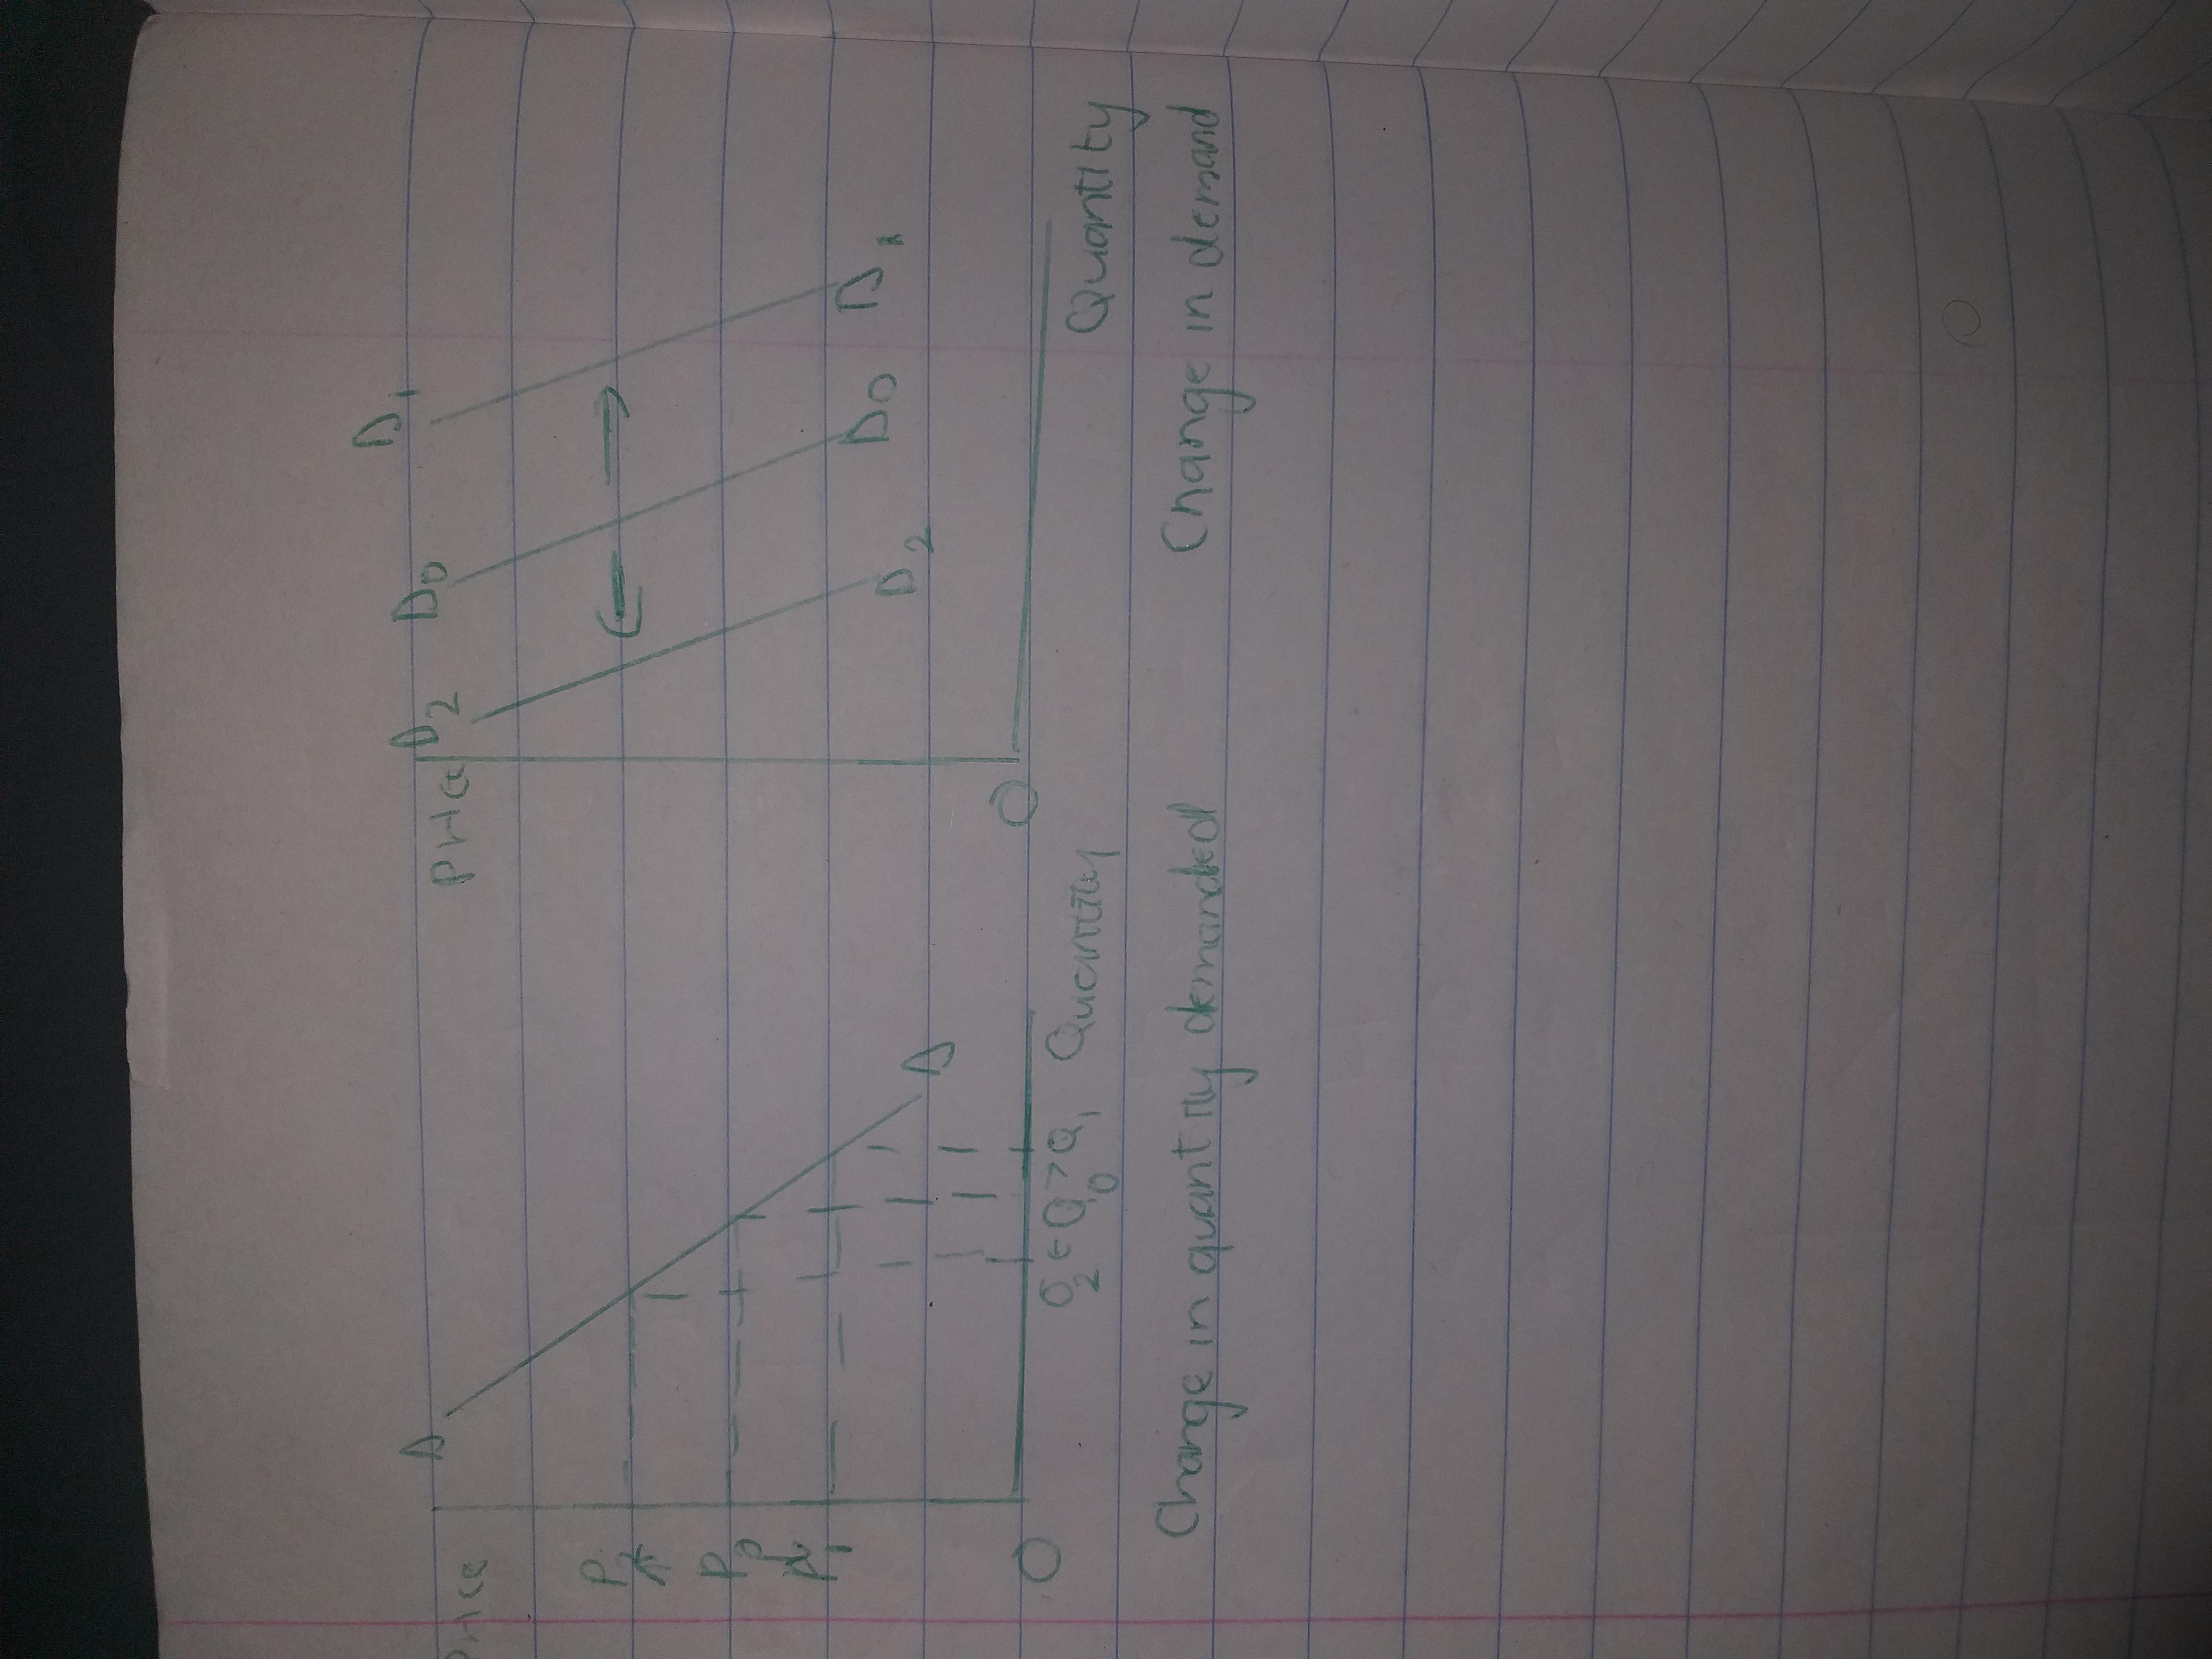 Price
D
P2
P0
P1
D
O
Q2 ← Q0 > Q1 Quantity
Change in quantity demanded
Price
D2 D0 D1
← →
D2 D0 D1
O
Quantity
Change in demand